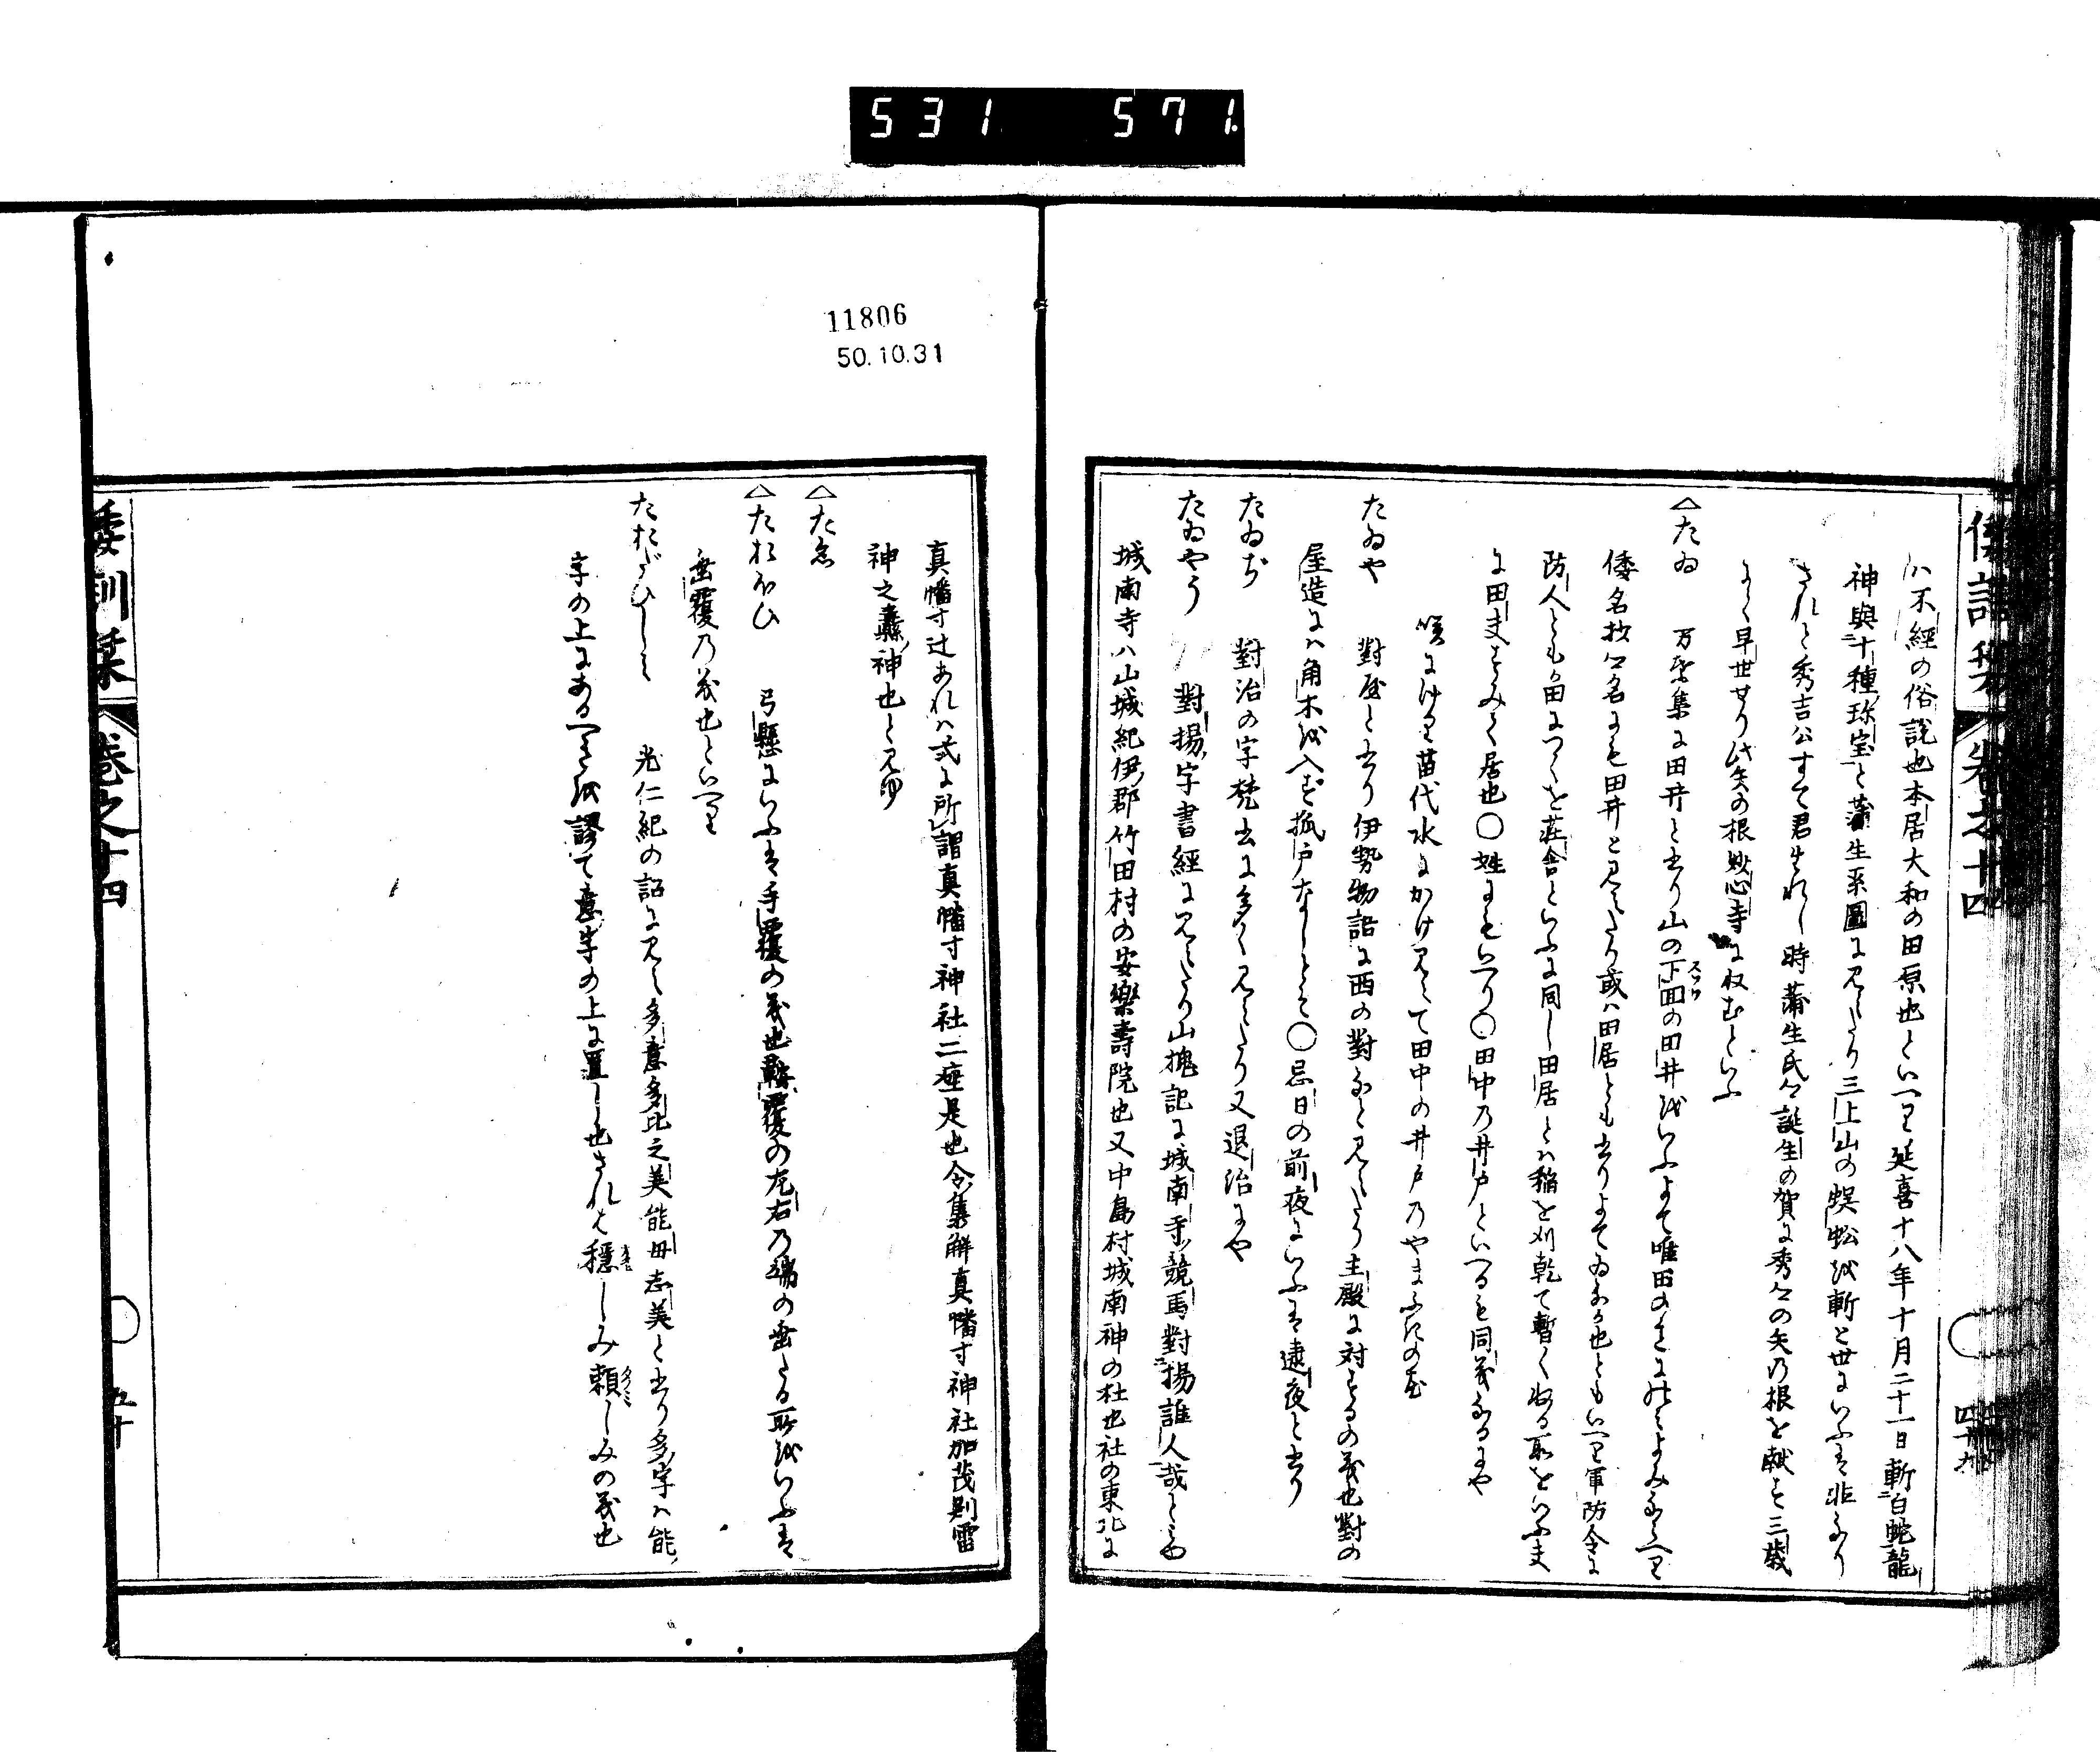 531 571.
倭訓栞 巻之十四 四十九
ハ不經の俗説也本居大和の田原也といへり延喜十八年十月二十一日斬白蛇龍
神與十種珎宝と蒲生系圖に見えたり三上山の蜈蚣を斬と世にいふは非なり
されと秀吉公すて君生れし時蒲生氏より誕生の賀に秀郷の矢の根を献と三歳
にて早世せり此矢の根妙心寺に収むといふ
△たゐ 万葉集に田井と書り山の下田の田井をいふよて唯田のことにのみよみなへり
倭名抄郷名にも田井と見えたり或ハ田居とも書りよてゐなか也ともいへり軍防令に
防人とも田につくを荘舎といふに同し田居とハ稲を刈乾て暫く收る所をいふ夫
に田夫すみて居也○姓にもいへり○田中乃井戸といへるも同義なるにや
咲にけり苗代水にかけ見えて田中の井戸乃やまふきの花
たゐや 對屋と書り伊勢物語に西の對なと見えたり主殿に対するの義也對の
屋造にハ角木を入す狐戸なしとそ○忌日の前夜にいふは逮夜と書り
たゐぢ 對治の字梵書に多く見えたり又退治にや
たゐやう 對揚字書經に見えたり山槐記に城南寺競馬對揚誰人哉と見ゆ
城南寺ハ山城紀伊郡竹田村の安樂壽院也又中島村城南神の社也社の東北に
真幡寸辻あれハ式に所謂真幡寸神社二座是也令集解真幡寸神社加茂別雷
神之纛神也と見ゆ
△たゑ
△たおほひ 弓懸にいふは手覆の義也鞍覆の左右乃端の垂たる所をいふは
垂覆乃義也といへり
たおだひしミ 光仁紀の詔に見え多意多比之美能毋志美と書り多字ハ能
字の上にあるへきを謬て意字の上に置し也されは穏しみ頼しみの義也
倭訓栞 巻之十四 五十
11806
50.10.31